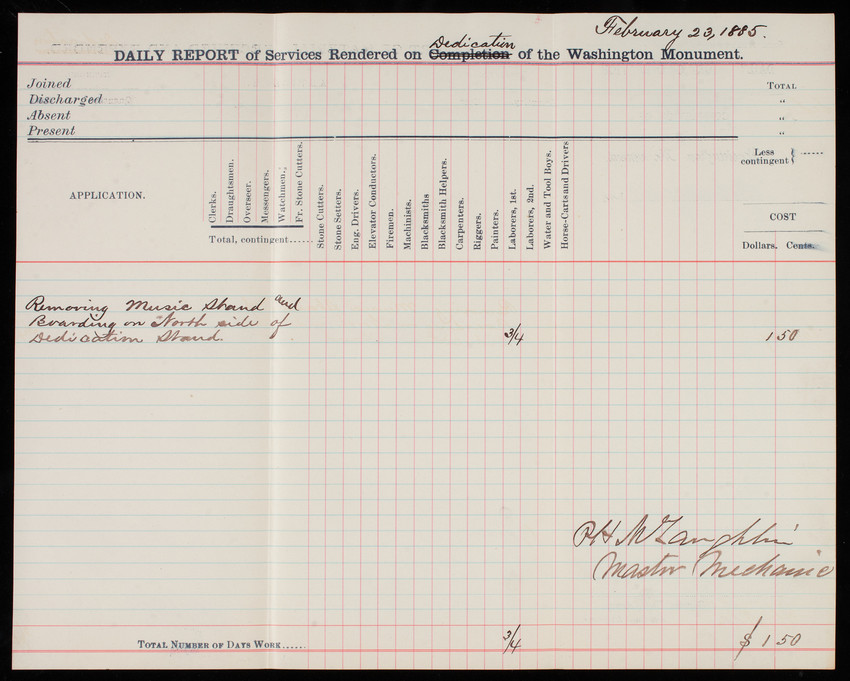 February 23, 1885.
Dedication
DAILY REPORT of Services Rendered on Completion of the Washington Monument.
Joined
Discharged
Absent
Present
TOTAL
"
"
"
Less contingent } ------
APPLICATION.
Clerks.
Draughtsmen.
Overseer.
Messengers.
Watchmen.
Fr. Stone Cutters.
Total, contingent......
Stone Cutters.
Stone Setters.
Eng. Drivers.
Elevator Conductors.
Firemen.
Machinists.
Blacksmiths
Blacksmith Helpers.
Carpenters.
Riggers.
Painters.
Laborers, 1st.
Laborers, 2nd.
Water and Tool Boys.
Horse-Carts and Drivers
COST
Dollars. Cents.
Removing Music Stand and
Boarding on North side of
Dedication Stand. 3/4 1 50
P H McLaughlin
Master Mechanic
TOTAL NUMBER OF DAYS WORK...... 3/4 $ 1 50